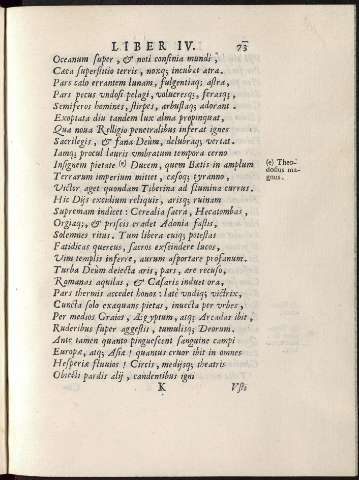 LIBER IV. 73
Oceanum super, & noti confinia mundi,
Cæca superstitio terris, noxq; incubat atra.
Pars cælo errantem lunam, fulgentiaq; astra,
Pars pecus undosi pelagi, volucresq;, ferasq;
Semiferos homines, stirpes, arbustaq; adorant.
Exoptata diu tandem lux alma propinquat,
Qua noua Relligio penetralibus inferat ignes
Sacrilegis, & fana Deûm, delubraq; vertat.
Iamq; procul lauris vmbratum tempora cerno
Insignem pietate (e) Ducem, quem Bætis in amplum
Terrarum imperium mittet, cæsoq; tyranno,
Victor aget quondam Tiberina ad flumina currus.
Hic Dijs excidium reliquis, arisq; ruinam
Supremam indicet: Cerealia sacra, Hecatombas,
Orgiaq;, & priscis eradet Adonia fastis,
Solemnes ritus. Tum libera cuiq; potestas
Fatidicas quercus, sacros exscindere lucos,
Vim templis inferre, aurum asportare profanum.
Turba Deûm deiecta aris; pars, ære recuso,
Romanas aquilas, & Cæsaris induet ora,
Pars thermis accedet honos: latè vndiq; victrix,
Cuncta solo exæquans pietas, inuecta per vrbes,
Per medios Graios, Ægyptum, atq; Arcadas ibit,
Ruderibus super aggestis, tumulisq; Deorum.
Antè tamen quanto pinguescent sanguine campi
Europæ, atq; Asiæ! quantus cruor ibit in omnes
Hesperiæ fluuios! Circis, medijsq; theatris
Obiecti pardis alij, candentibus igni
K Vsti
(e) Theo-
dosius ma-
gnus.